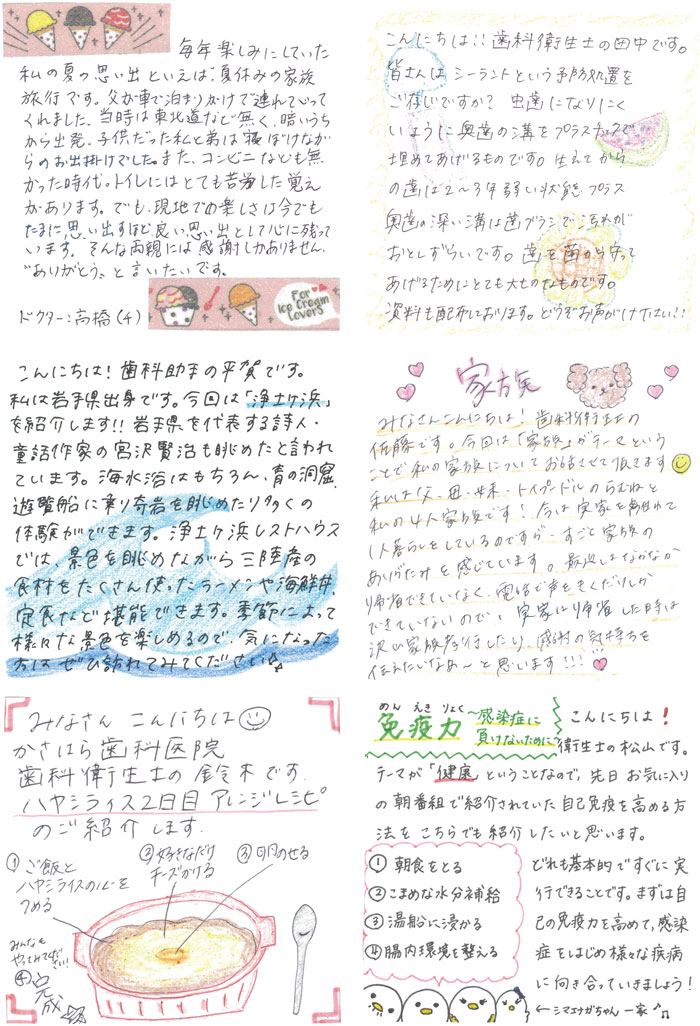 毎年楽しみにしていた
私の夏の思い出といえば、夏休みの家族
旅行です。父が車で泊まりがけで連れていって
くれました。当時は東北道なども無く、暗いうち
から出発、子供だった私と弟は寝ぼけながら
のお出掛けでした。また、コンビニなども無
かった時代。トイレにはとても苦労した覚え
があります。でも、現地での楽しさは今でも
たまに、思い出すほど良い思い出として心に残って
います。そんな両親には感謝しかありません。
"ありがとう、と言いたいです。
ドクター:高橋(4)
For
Ice Cream
Lovers
こんにちは!!歯科衛生士の田中です。
皆さんは シーラントという予防処置を
ご存じですか? 虫歯になりにく
いように奥歯の溝をプラスチックで
埋めてあげるものです。生えてから
の歯は2〜3年弱い状態 プラス
奥歯の深い溝は歯ブラシで汚れが
おとしずらいです。歯を菌から守って
あげるためにとても大切なものです。
資料も配布しております。どうぞお声がけ下さい!!
こんにちは!歯科助手の平賀です。
私は岩手県出身です。今回は「浄土ヶ浜」
を紹介します!!岩手県を代表する詩人・
童話作家の宮沢賢治も眺めたと言われ
ています。海水浴はもちろん、青の洞窟、
遊覧船に乗り奇岩を眺めたり多くの
体験ができます。浄土ヶ浜レストハウス
では、景色を眺めながら三陸産の
食材をたくさん使ったラーメンや海鮮丼、
定食など堪能できます。季節によって
様々な景色を楽しめるので、気になった
方は ぜひ訪れてみてください♪
家族
みなさんこんにちは!歯科衛生士の
佐藤です。今回は「家族」がテーマという
ことで私の家族についてお話させて頂きます
私は父・母・妹・トイプードルのらむねと
私の4人家族です!今は実家を離れて
1人暮らしをしているのですが…すごく家族の
ありがたみを感じています。最近はなかなか
帰省できていなく、電話で声をきくだけしか
できていないので、実家に帰省した時は
沢山家族孝行したり、感謝の気持ちを
伝えたいなあ〜と思います!!!
みなさん こんにちは
かさはら歯科医院
歯科衛生士の鈴木です。
ハヤシライス2日目 アレンジレシピ
のご紹介します。
① ご飯と
ハヤシライスのルーを
つめる
②好きなだけ
チーズかける
③卵のせる
みんなも
やってみてくださ
い!
④完成
めんえきりょく
免疫力
〜感染症に
負けないために〜
こんにちは!
衛生士の松山です。
テーマが「健康」ということなので、先日お気に入り
の朝番組で紹介されていた自己免疫を高める方
法をこちらでも紹介したいと思います。
① 朝食をとる
② こまめな水分補給
③ 湯船に浸かる
④ 腸内環境を整える
どれも基本的ですぐに実
行できることです。まずは自
己の免疫力を高めて、感染
症をはじめ様々な疾病
に向き合っていきましょう!
←シマエナガちゃん一家♪